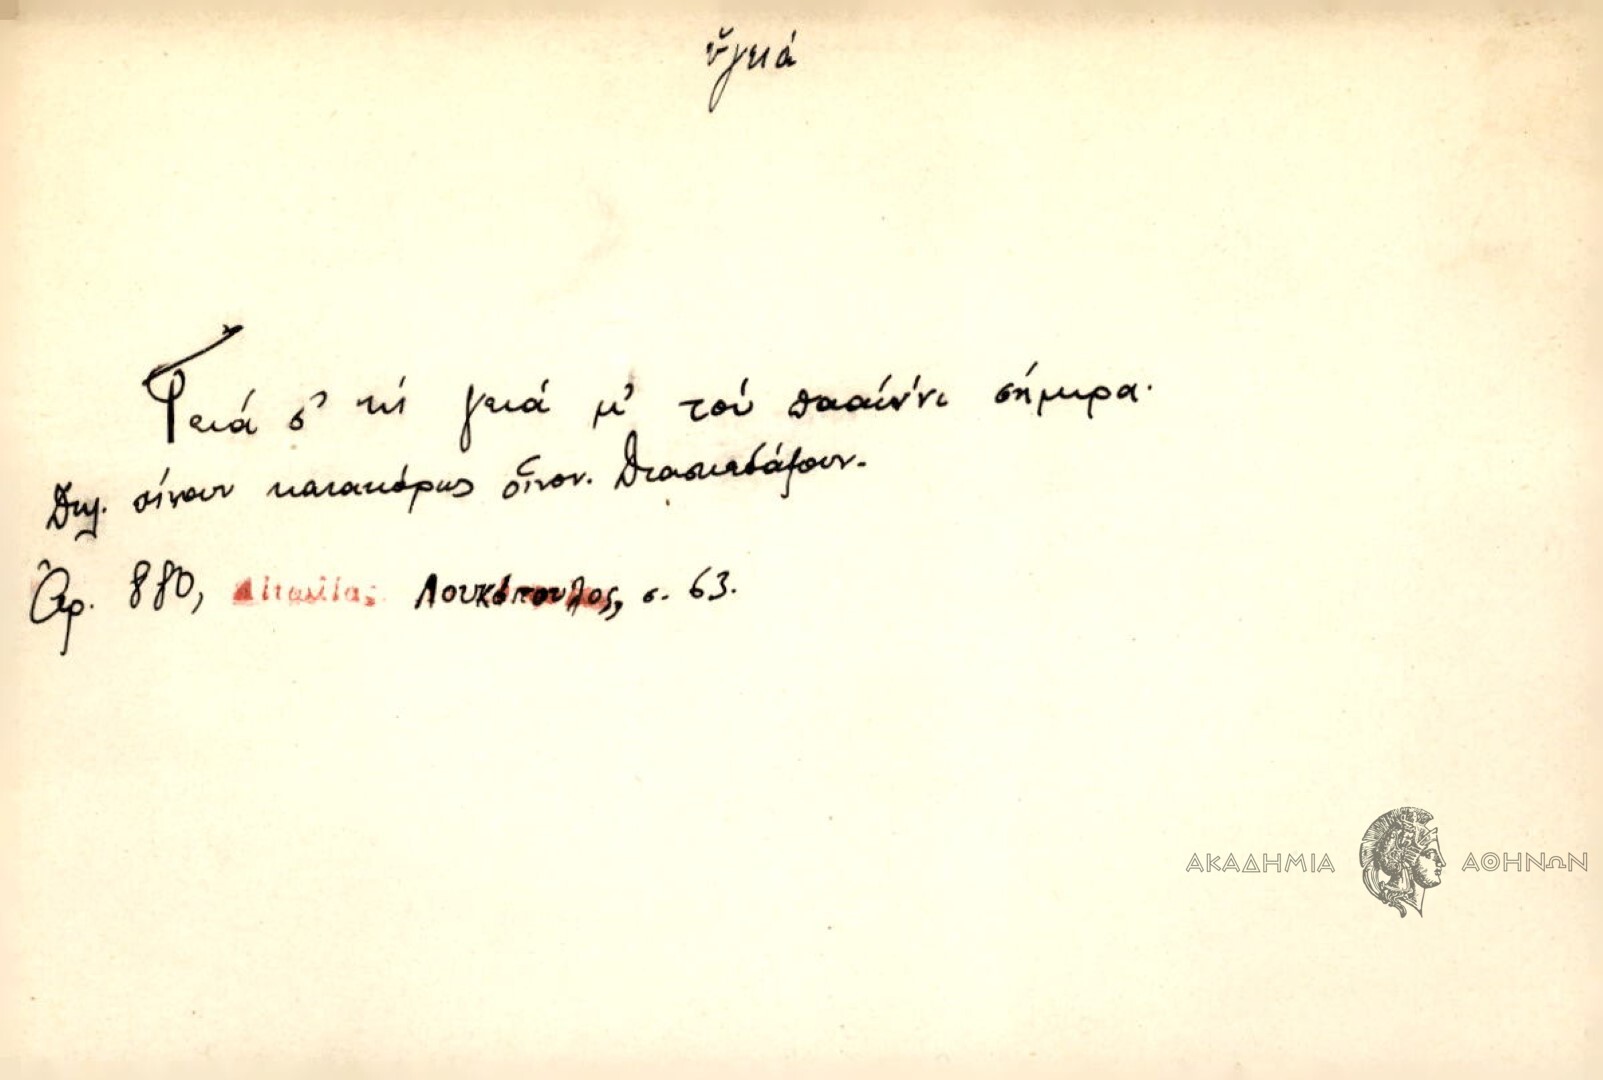 ὑγειά
Γειά σ' κὶ γειά μ' τοὺ πααίν'νι σήμιρα.
Δηλ. πίνουν κατακόρως οἶνον. Διασκεδάζουν.
Ἀρ. 880, Αἰτωλία, Λουκόπουλος, σ. 63.
ΑΚΑΔΗΜΙΑ ΑΘΗΝΩΝ